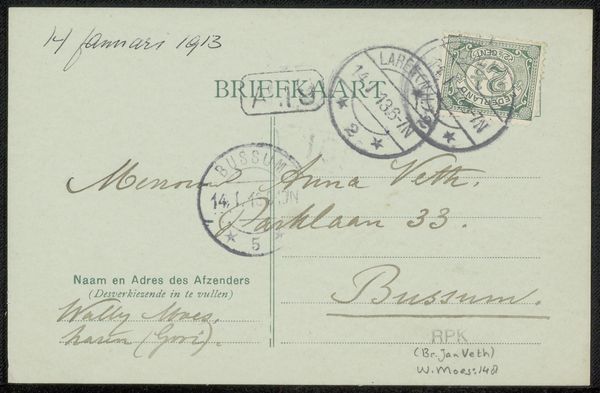 14 Januari 1913
BRIEFKAART
LAREN
14.1.13.8-7N
2
NEDERLAND
2½
BUSSUM
14.1.13
5
Menouw Anna Veth.
Parklaan 33.
Bussum.
Naam en Adres des Afzenders
(Desverkiezende in te vullen)
Wally Moes.
Laren (Gooi).
RPK
(Br. Jan Veth)
W. Moes: 148